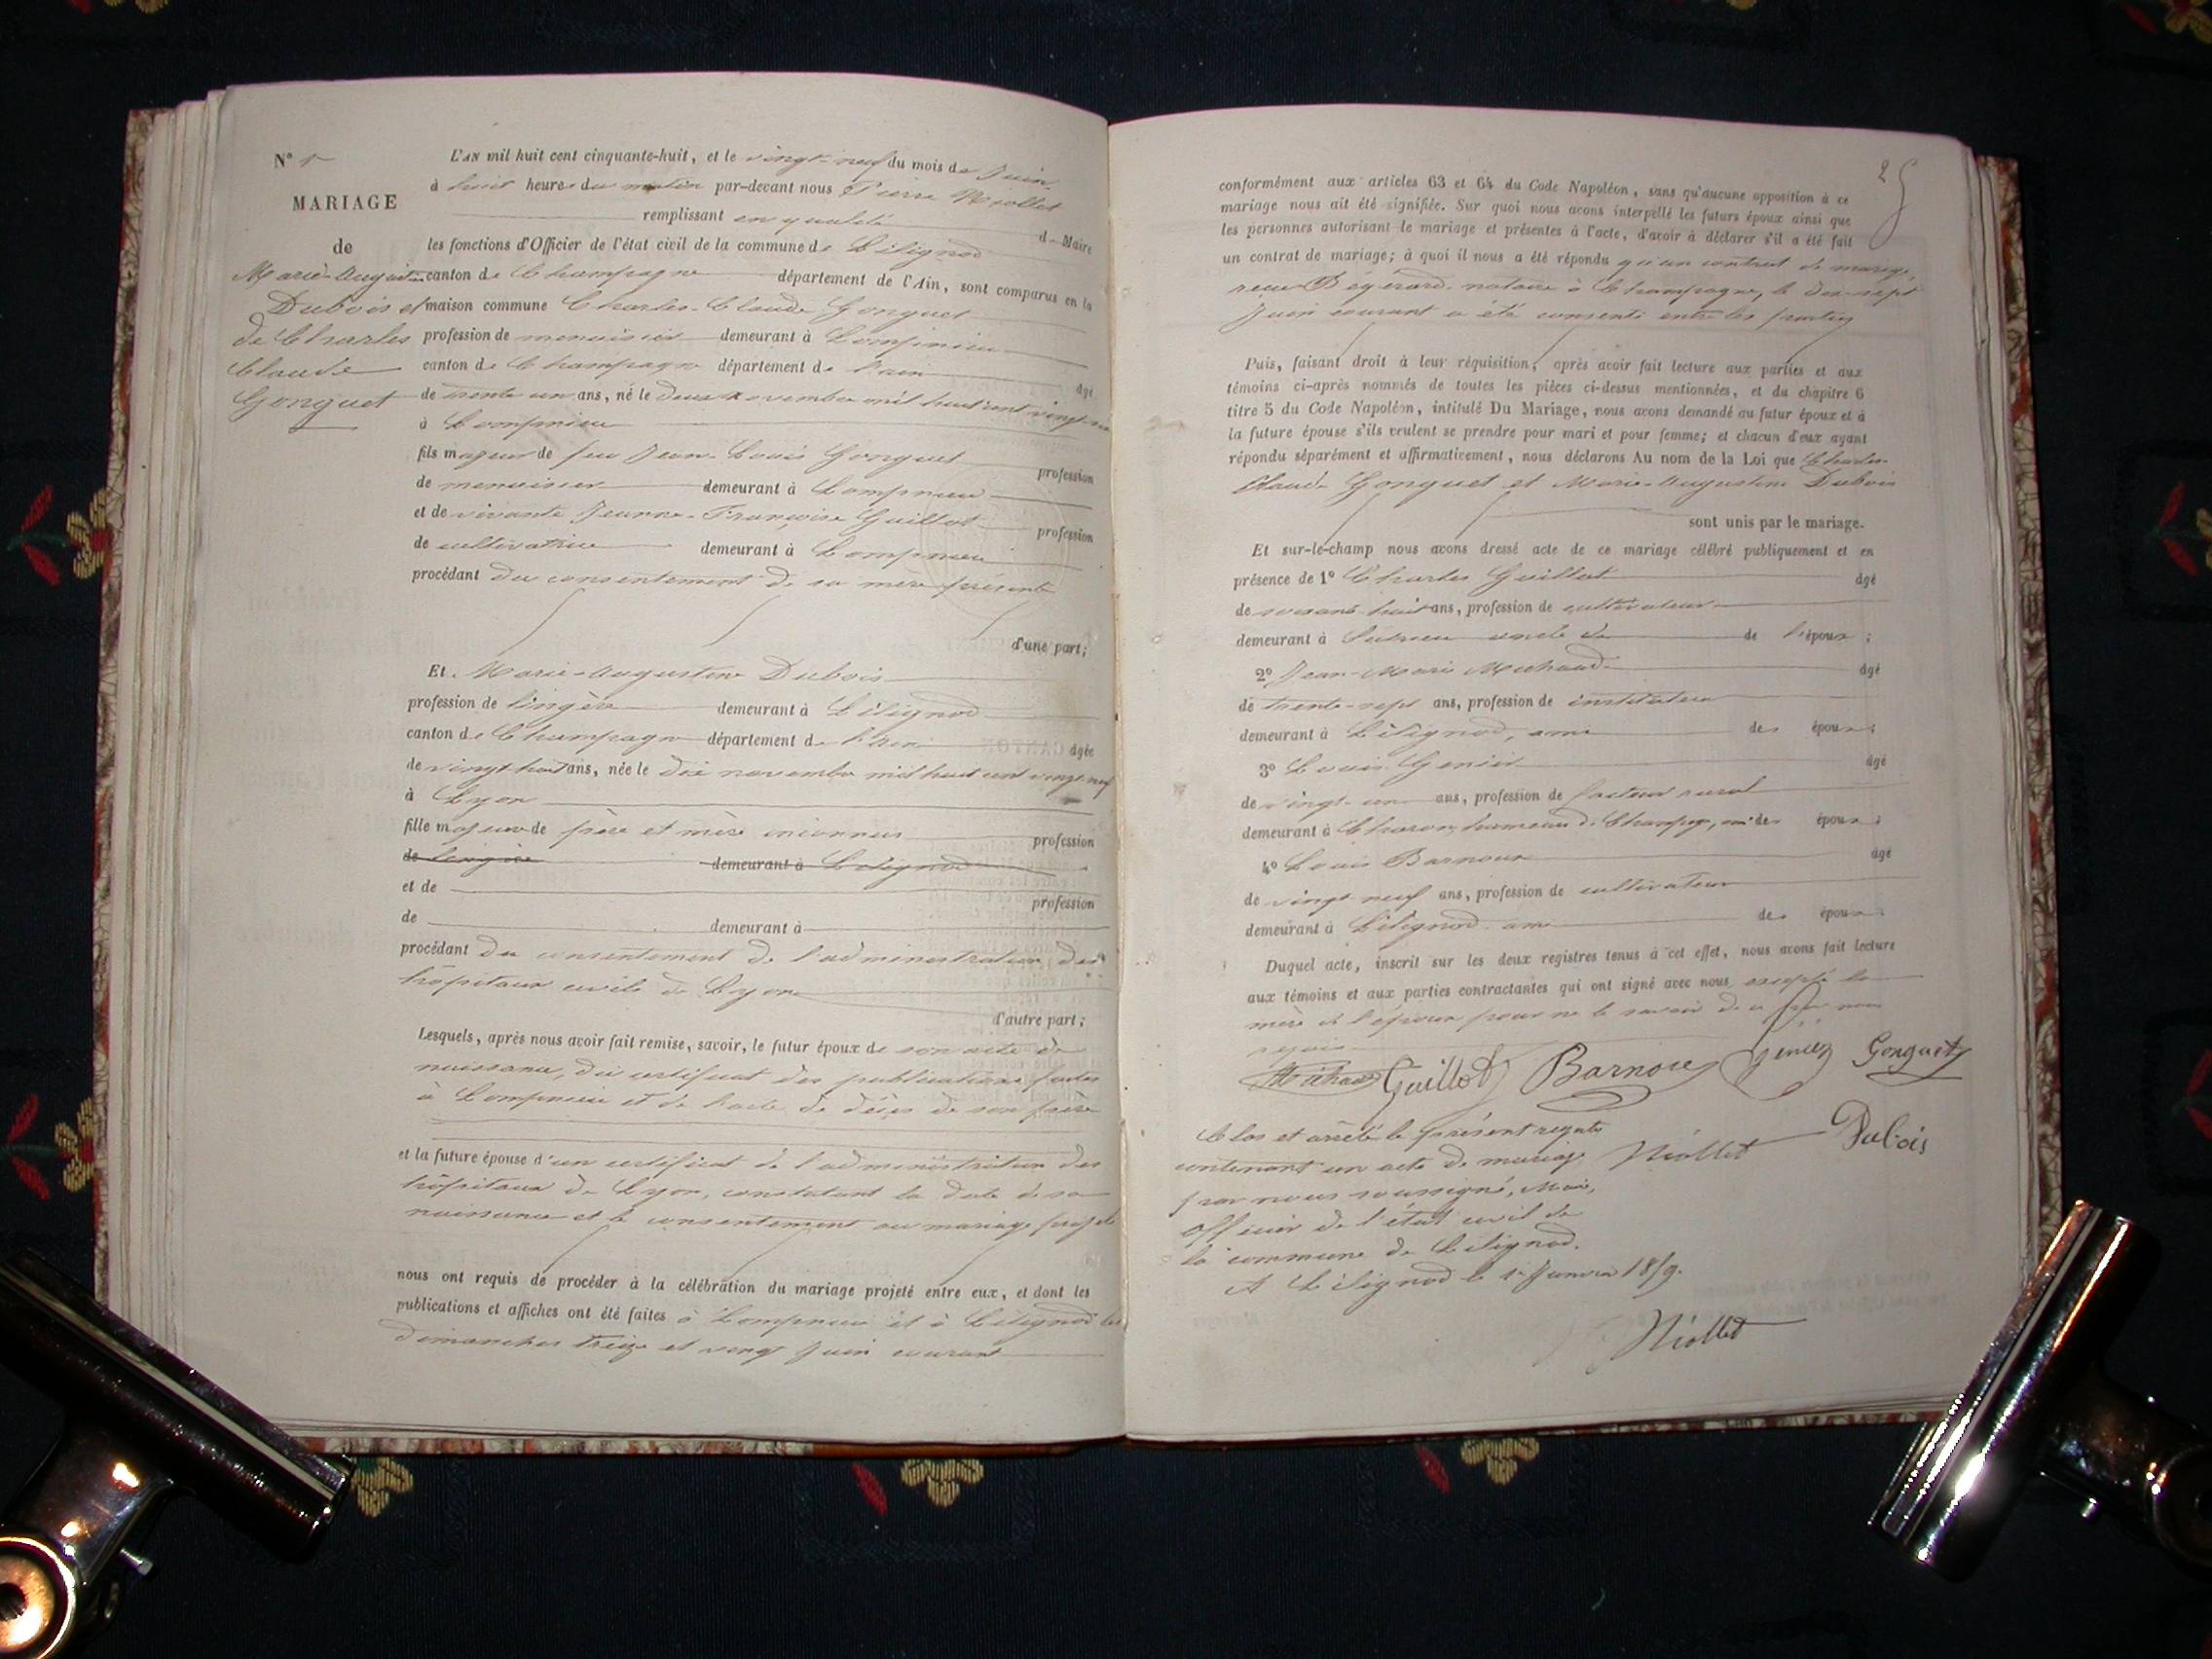 N° 1
MARIAGE
de
Marie-Augustine
Dubois et
de Charles
Claude
Gonguet
L'AN mil huit cent cinquante-huit, et le vingt-neuf du mois de Juin
à huit heures du matin par-devant nous Pierre Niollet
remplissant en qualité de Maire
les fonctions d'Officier de l'état civil de la commune de Lilignod
canton de Champagne département de l'Ain, sont comparus en la
maison commune Charles-Claude Gonguet
profession de menuisier demeurant à Lompnieu
canton de Champagne département de l'ain âgé
de trente un ans, né le deux novembre mil huit cent vingt-six
à Lompnieu
fils majeur de feu Jean-Louis Gonguet profession
de menuisier demeurant à Lompnieu
et de vivante Jeanne-Françoise Guillot profession
de cultivatrice demeurant à Lompnieu
procédant du consentement de sa mère présente
d'une part;
Et Marie-Augustine Dubois
profession de lingère demeurant à Lilignod
canton de Champagne département de l'Ain âgée
de vingt huit ans, née le dix novembre mil huit cent vingt-neuf
à Lyon
fille majeure de père et mère inconnus profession
de lingère demeurant à Lilignod
et de profession
de demeurant à
procédant du consentement de l'administration des
hôpitaux civils de Lyon
d'autre part;
Lesquels, après nous avoir fait remise, savoir, le futur époux de son acte de
naissance, du certificat des publications faites
à Lompnieu et de l'acte de décès de son père
et la future épouse d'un certificat de l'administration des
hôpitaux de Lyon, constatant la date de sa
naissance et le consentement au mariage projeté
nous ont requis de procéder à la célébration du mariage projeté entre eux, et dont les
publications et affiches ont été faites à Lompnieu et à Lilignod les
dimanches treize et vingt Juin courant
25
conformément aux articles 63 et 64 du Code Napoléon, sans qu'aucune opposition à ce
mariage nous ait été signifiée. Sur quoi nous avons interpellé les futurs époux ainsi que
les personnes autorisant le mariage et présentes à l'acte, d'avoir à déclarer s'il a été fait
un contrat de mariage; à quoi il nous a été répondu qu'un contrat de mariage,
reçu Bégérard notaire à Champagne, le dix-sept
Juin courant a été consenti entre les parties
Puis, faisant droit à leur réquisition, après avoir fait lecture aux parties et aux
témoins ci-après nommés de toutes les pièces ci-dessus mentionnées, et du chapitre 6
titre 5 du Code Napoléon, intitulé Du Mariage, nous avons demandé au futur époux et à
la future épouse s'ils veulent se prendre pour mari et pour femme; et chacun d'eux ayant
répondu séparément et affirmativement, nous déclarons Au nom de la Loi que Charles-
Claude Gonguet et Marie-Augustine Dubois
sont unis par le mariage.
Et sur-le-champ nous avons dressé acte de ce mariage célébré publiquement et en
présence de 1° Charles Guillot âgé
de soixante huit ans, profession de cultivateur
demeurant à oncle de de l'époux;
2° Jean-Marie Michaud âgé
de trente-sept ans, profession de instituteur
demeurant à Lilignod, ami des époux;
3° Louis Genier âgé
de vingt-un ans, profession de facteur rural
demeurant à Charon hameau de Champagne, ami des époux;
4° Louis Barnoux âgé
de vingt neuf ans, profession de cultivateur
demeurant à Lilignod ami des époux;
Duquel acte, inscrit sur les deux registres tenus à cet effet, nous avons fait lecture
aux témoins et aux parties contractantes qui ont signé avec nous excepté la
mère de l'époux pour ne le savoir de ce par nous
requis
Michaud Guillot Barnoux Genier Gonguet
Dubois
Niollet
Clos et arrêté le présent registre
contenant un acte de mariage
par nous soussigné, Maire,
officier de l'état civil de
la commune de Lilignod.
A Lilignod le 1er Janvier 1859.
Niollet